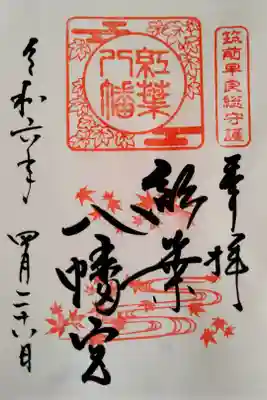 筑前早良総守護
奉拝
紅葉
八幡
紅葉
八幡宮
令和六年
四月二十六日